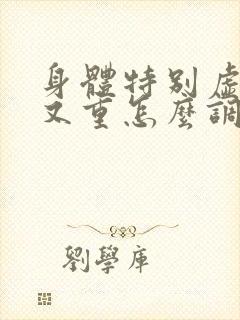 身體特別虛
又重怎麼調
劉學庫